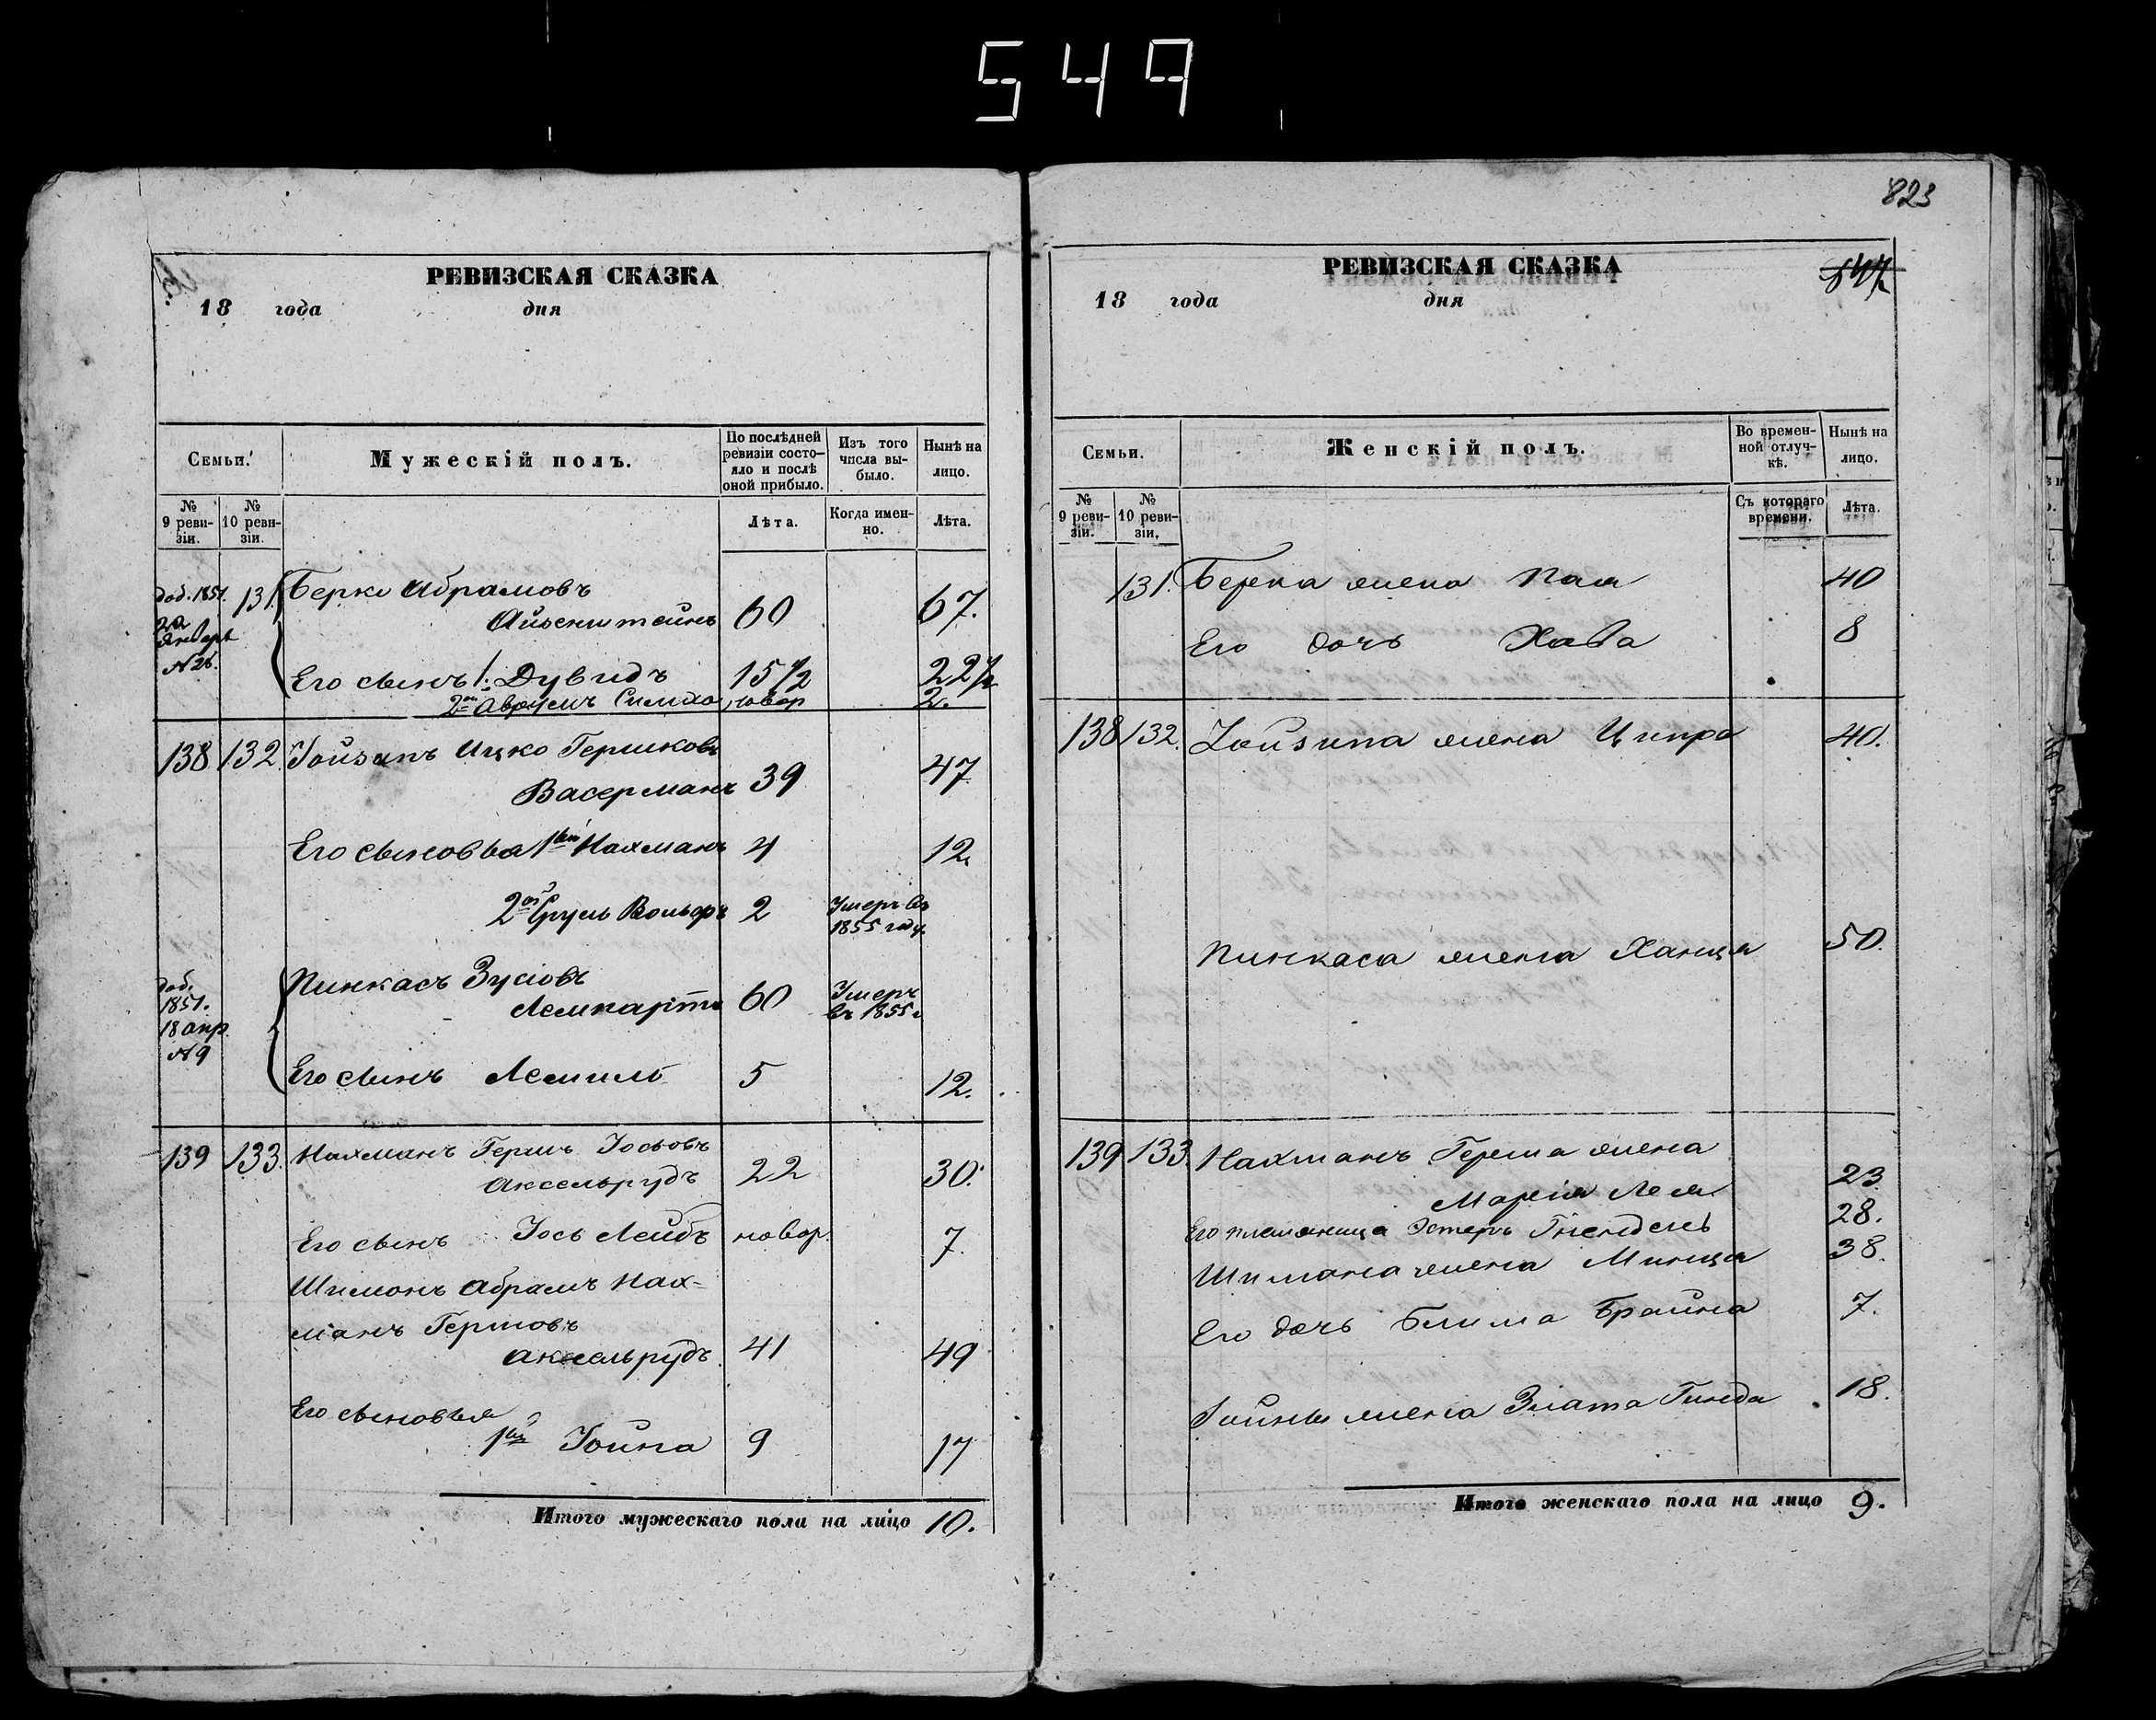 549
823
РЕВИЗСКАЯ СКАЗКА
18 года дня
Семьи.
Мужескій полъ.
По послѣдней ревизіи состо-
яло и послѣ оной прибыло.
Изъ того числа вы-
было.
Нынѣ на лицо.
№ 9 реви-
зіи.
№ 10 реви-
зіи.
Лѣта.
Когда имен-
но.
Лѣта.
доб. 1851. 22 Январ № 26.
131. Берко Абрамовъ
Айзенштейнъ 60 67.
Его сынъ 1. Дувидъ 15 1/2 22 1/2
2й Аврумъ Симха новор 2.
138 132 Іойзипъ Ицко Гершковъ
Васерманъ 39 47
Его сыновья 1ый Нахманъ 4 12.
2ой Сруль Вольфъ 2 Умеръ въ 1855 году.
доб. 1851. 18 апр. № 9
Пинкасъ Зусіовъ
Лемпартъ 60 Умеръ въ 1855 г
Его сынъ Лемиль 5 12.
139 133. Нахманъ Гершъ Іосьовъ
Аксельрудъ 22 30.
Его сынъ Іось Лейбъ новор. 7.
Шимонъ Абрамъ Нах-
манъ Гершовъ
Аксельрудъ 41 49
Его сыновья
1ый Іойна 9 17
Итого мужескаго пола на лицо 10.
РЕВИЗСКАЯ СКАЗКА
847
18 года дня
Семьи.
Женскій полъ.
Во времен-
ной отлуч-
кѣ.
Нынѣ на лицо.
№ 9 реви-
зіи.
№ 10 реви-
зіи.
Съ котораго времени.
Лѣта.
131. Берка жена Пая 40
Его дочь Хава 8
138 132. Іойзипа жена Ципра 40.
Пинкаса жена Ханця 50.
139 133. Нахманъ Герша жена
Маріія Лея 23.
Его племяница Эстеръ Гнендель 28.
Шимана жена Минця 38.
Его дочь Блима Брайна 7.
Іойны жена Злата Гинда 18.
Итого женскаго пола на лицо 9.